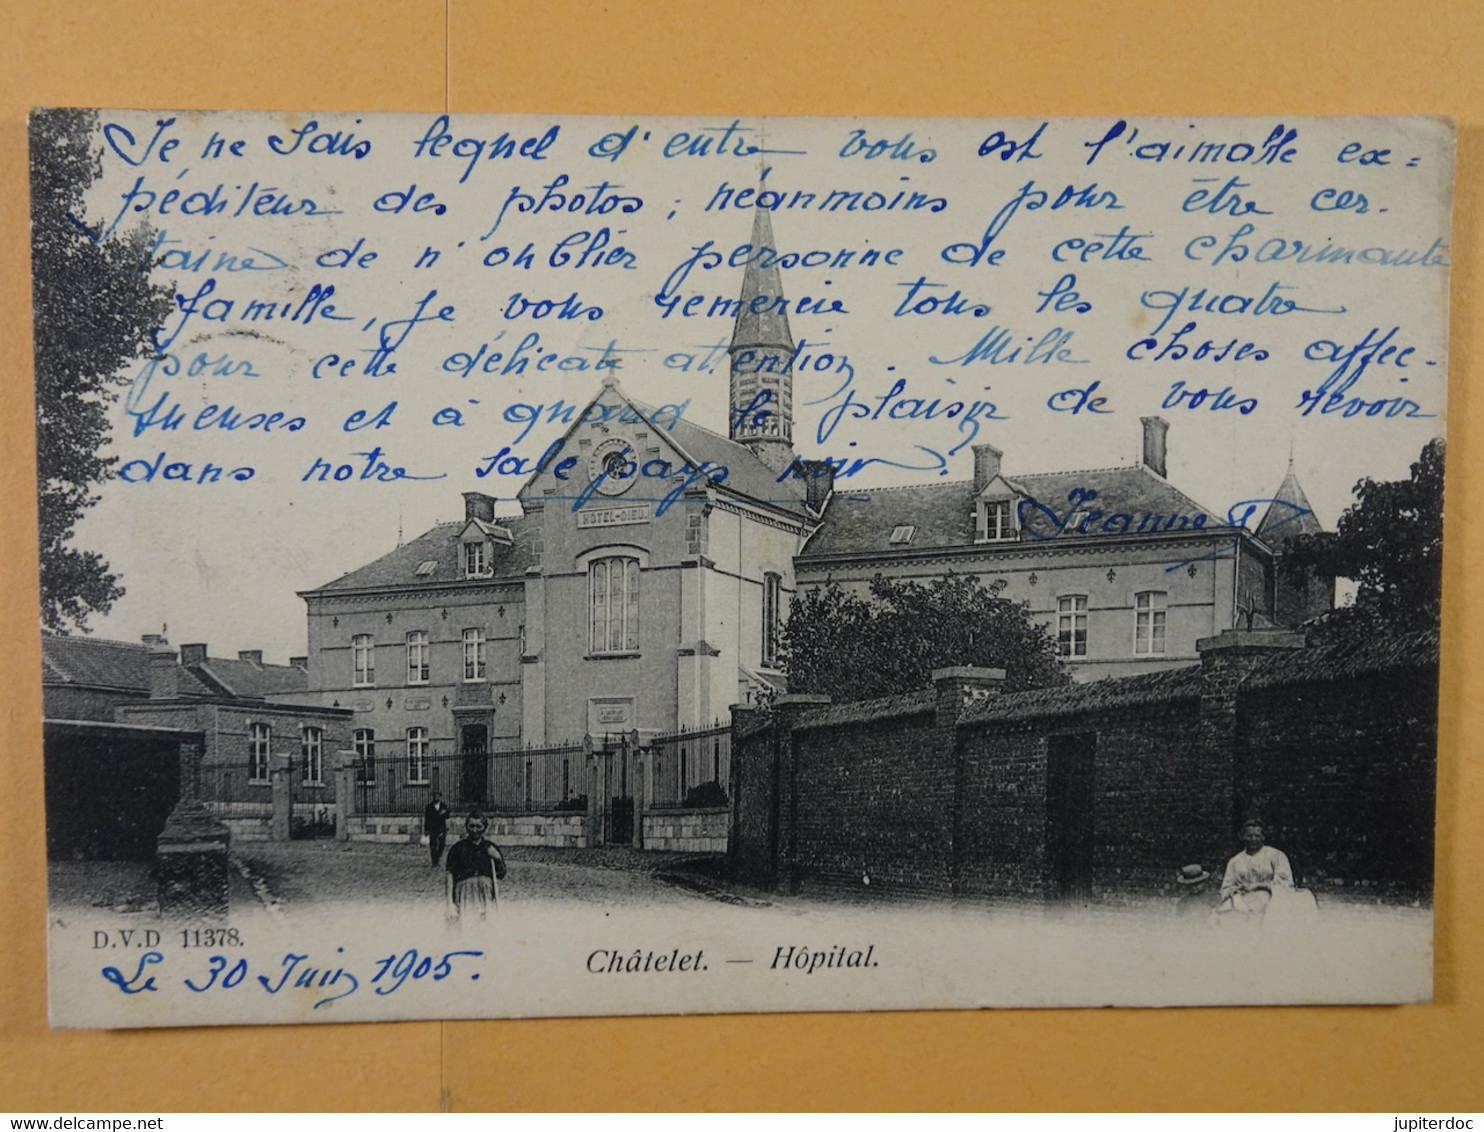 Je ne sais lequel d'entre vous est l'aimable ex=
péditeur des photos ; néanmoins pour être cer-
taine de n'oublier personne de cette charmante
famille, je vous remercie tous les quatre
pour cette délicate attention. Mille choses affec-
tueuses et à quand le plaisir de vous revoir
dans notre sale pays noir.
Jeanne
HOTEL-DIEU
D.V.D 11378.
Châtelet. — Hôpital.
Le 30 Juin 1905.
jupiterdoc